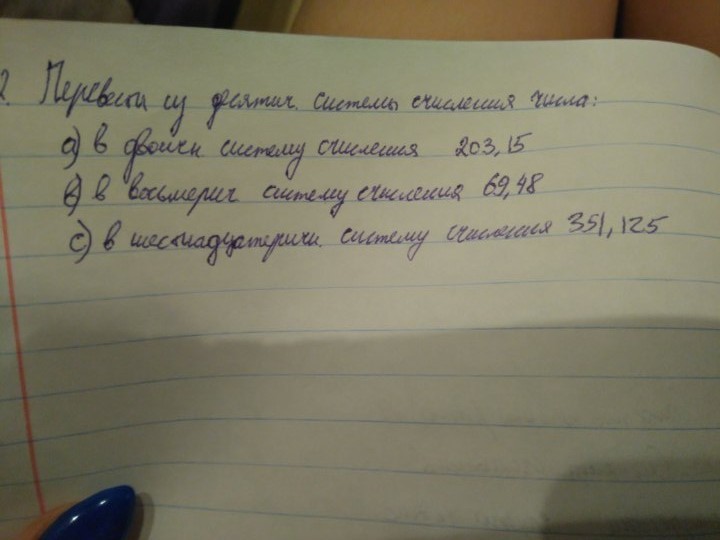 2. Перевести из десятич. системы счисления числа:
а) в двоичн. систему счисления 203,15
в) в восьмерич. систему счисления 69,48
с) в шестнадцатеричн. систему счисления 351,125